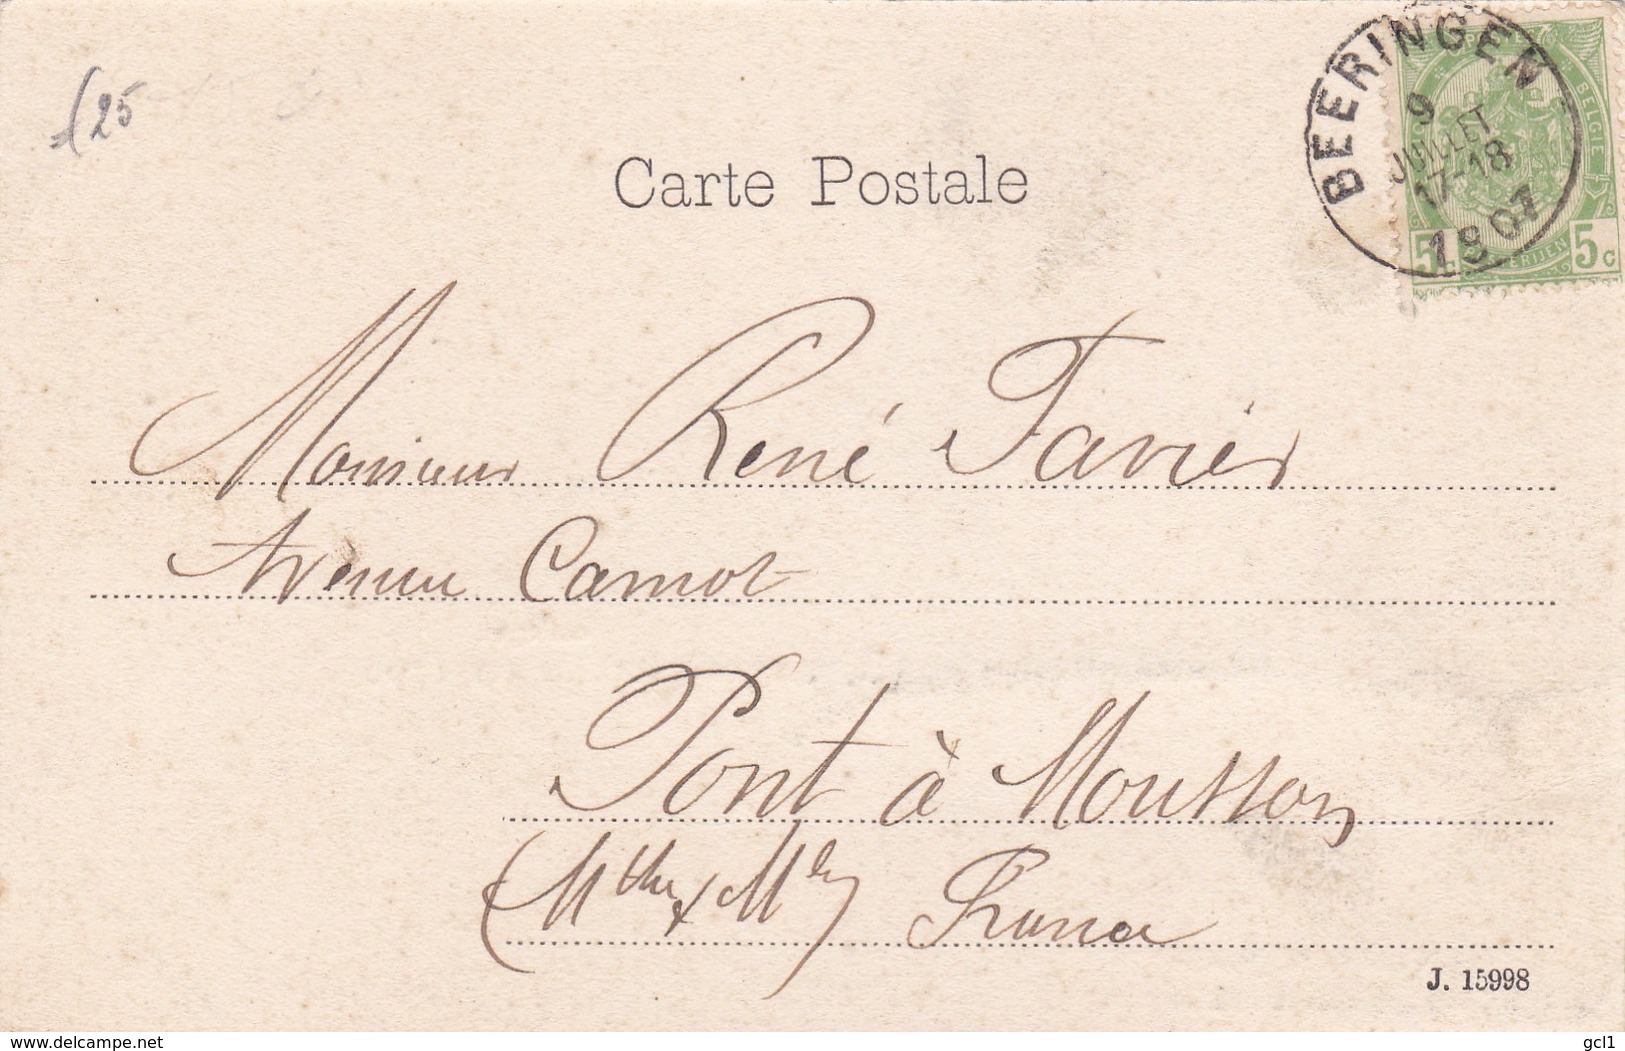 (25
Carte Postale
BEERINGEN
9
JUILLET
17-18
1907
BELGIE
5c 5c
Monsieur René Favier
Avenue Carnot
Pont à Mousson
(Mthe & Mlle) France
J. 15998
www.delcampe.net
gcl1